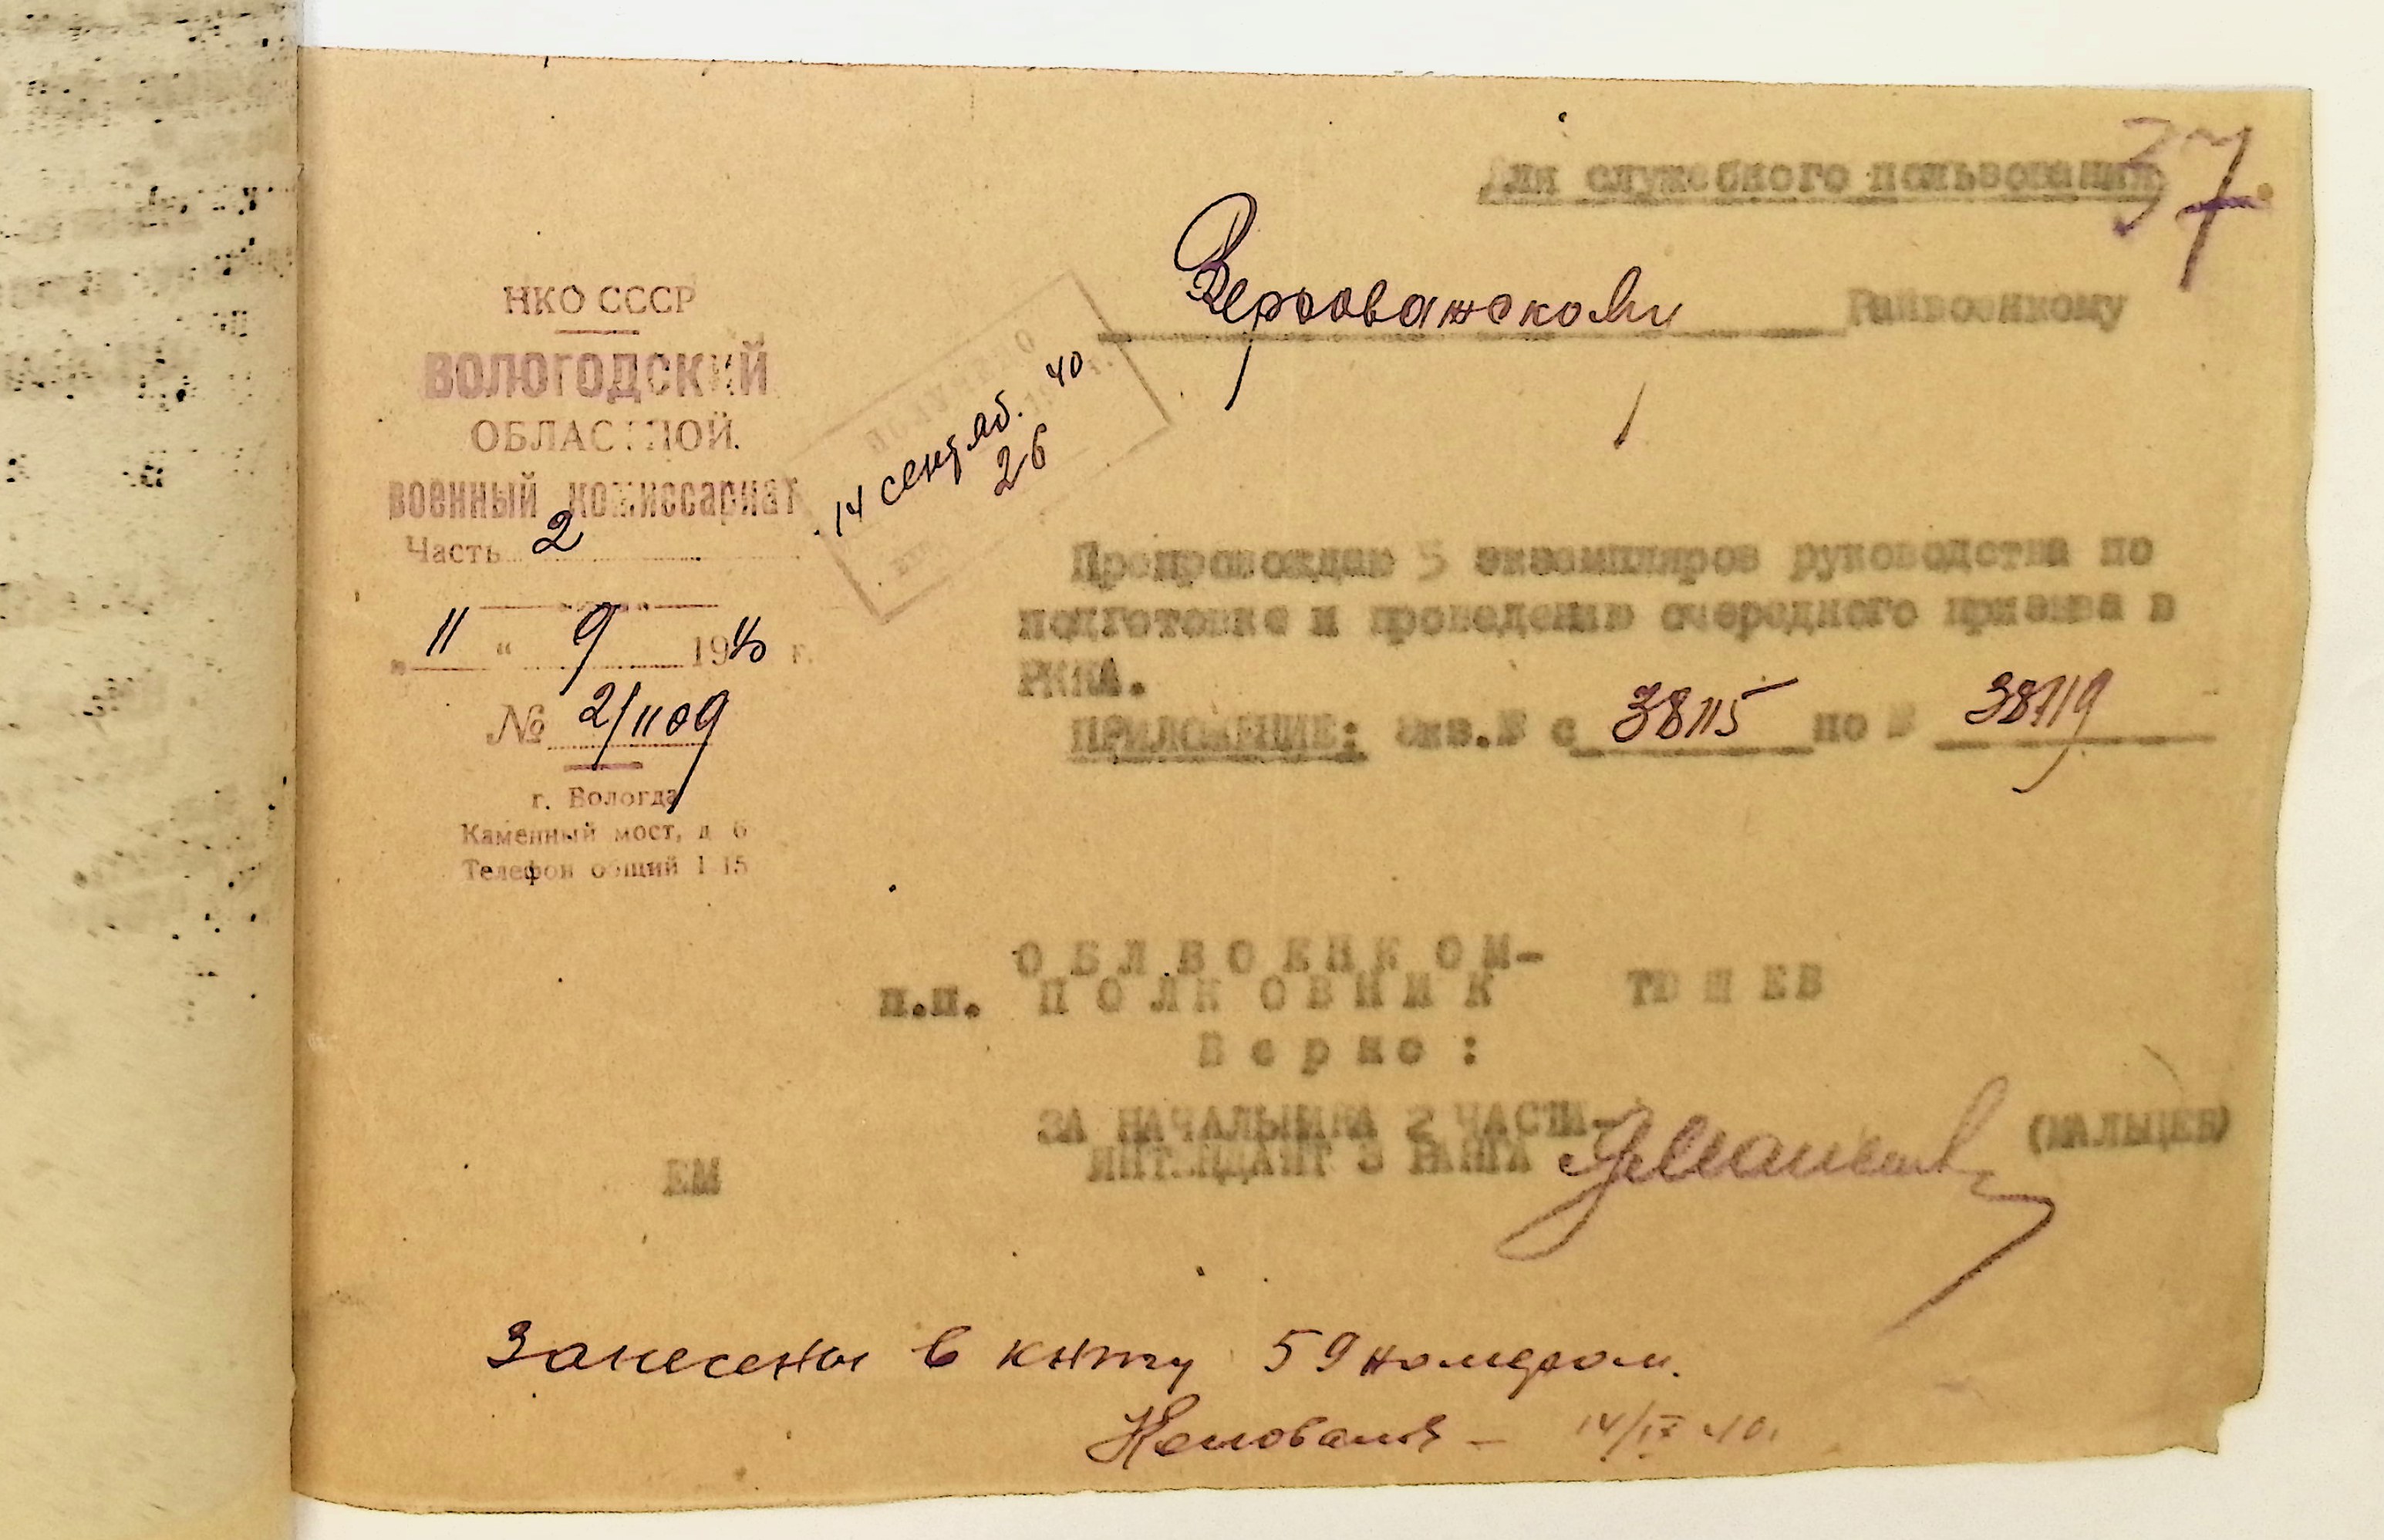 37
Для служебного пользования
Верховажскому Райвоенкому
НКО СССР
ВОЛОГОДСКИЙ
ОБЛАСТНОЙ.
военный комиссариат
Часть 2
„ 11 “ 9 1940 г.
№ 2/1109
г. Вологда
Каменный мост, д 6
Телефон общий 1-15
ПОЛУЧЕНО
14 сентяб. 40
26
Препровождаю 5 экземпляров руководства по
подготовке и проведению очередного призыва в
РККА.
ПРИЛОЖЕНИЕ: экз.№ с 38115 по № 38119
ОБЛВОЕНКОМ-
п.п. ПОЛКОВНИК ТЮШЕВ
Верно:
ЗА НАЧАЛЬНИКА 2 ЧАСТИ-
ИНТЕНДАНТ 3 РАНГА (МАЛЬЦЕВ)
ЕМ
Занесены в книгу 59 номером.
14/IX 40.